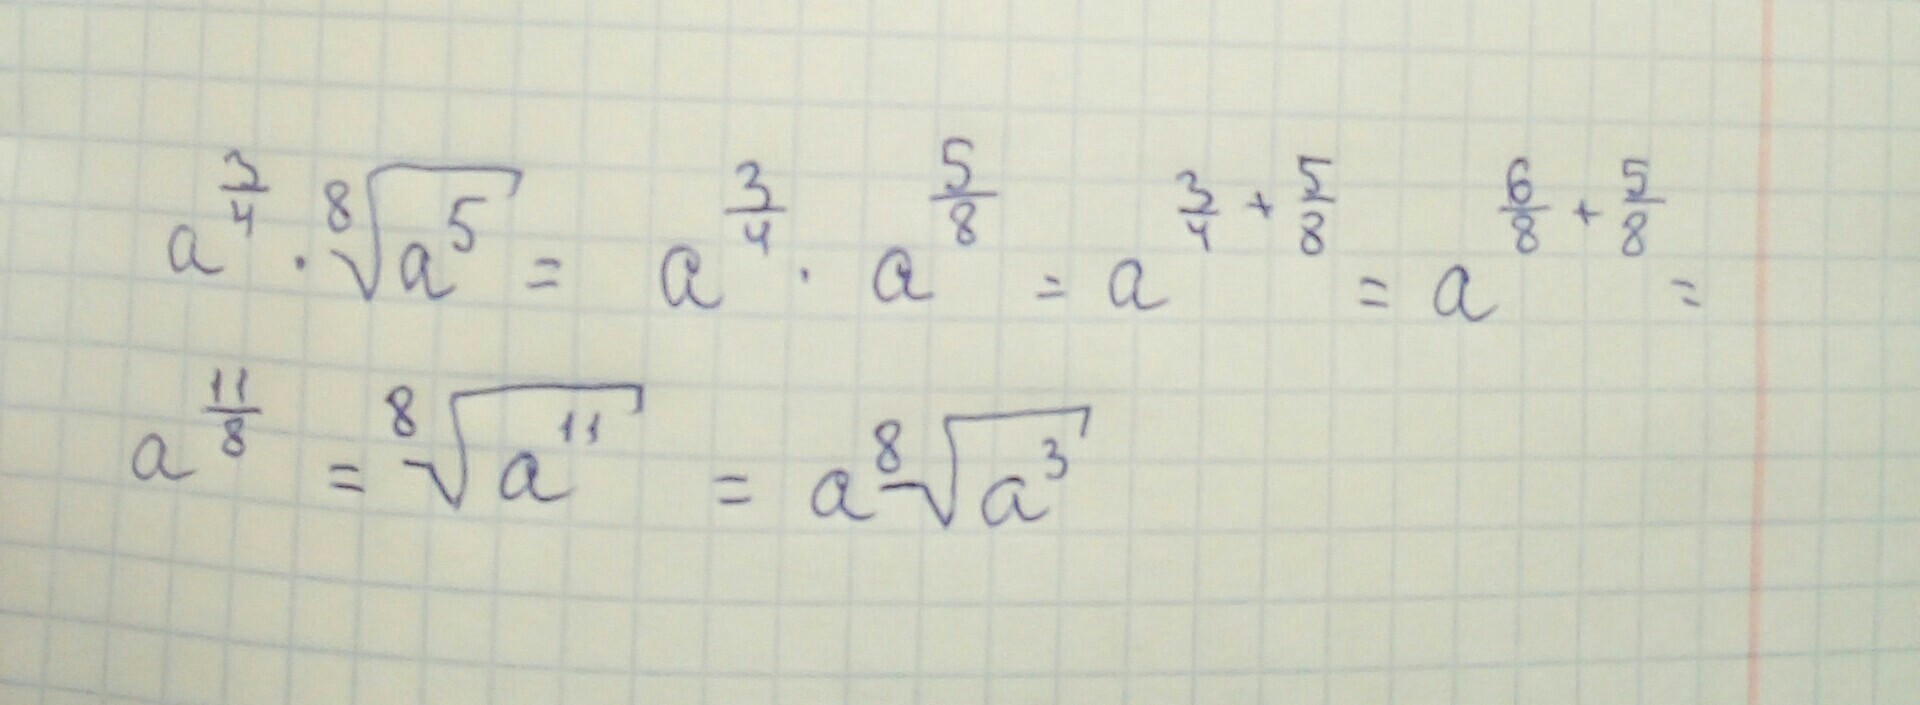 a^{3/4} · \sqrt[8]{a^5} = a^{3/4} · a^{5/8} = a^{3/4 + 5/8} = a^{6/8 + 5/8} =
a^{11/8} = \sqrt[8]{a^{11}} = a\sqrt[8]{a^3}